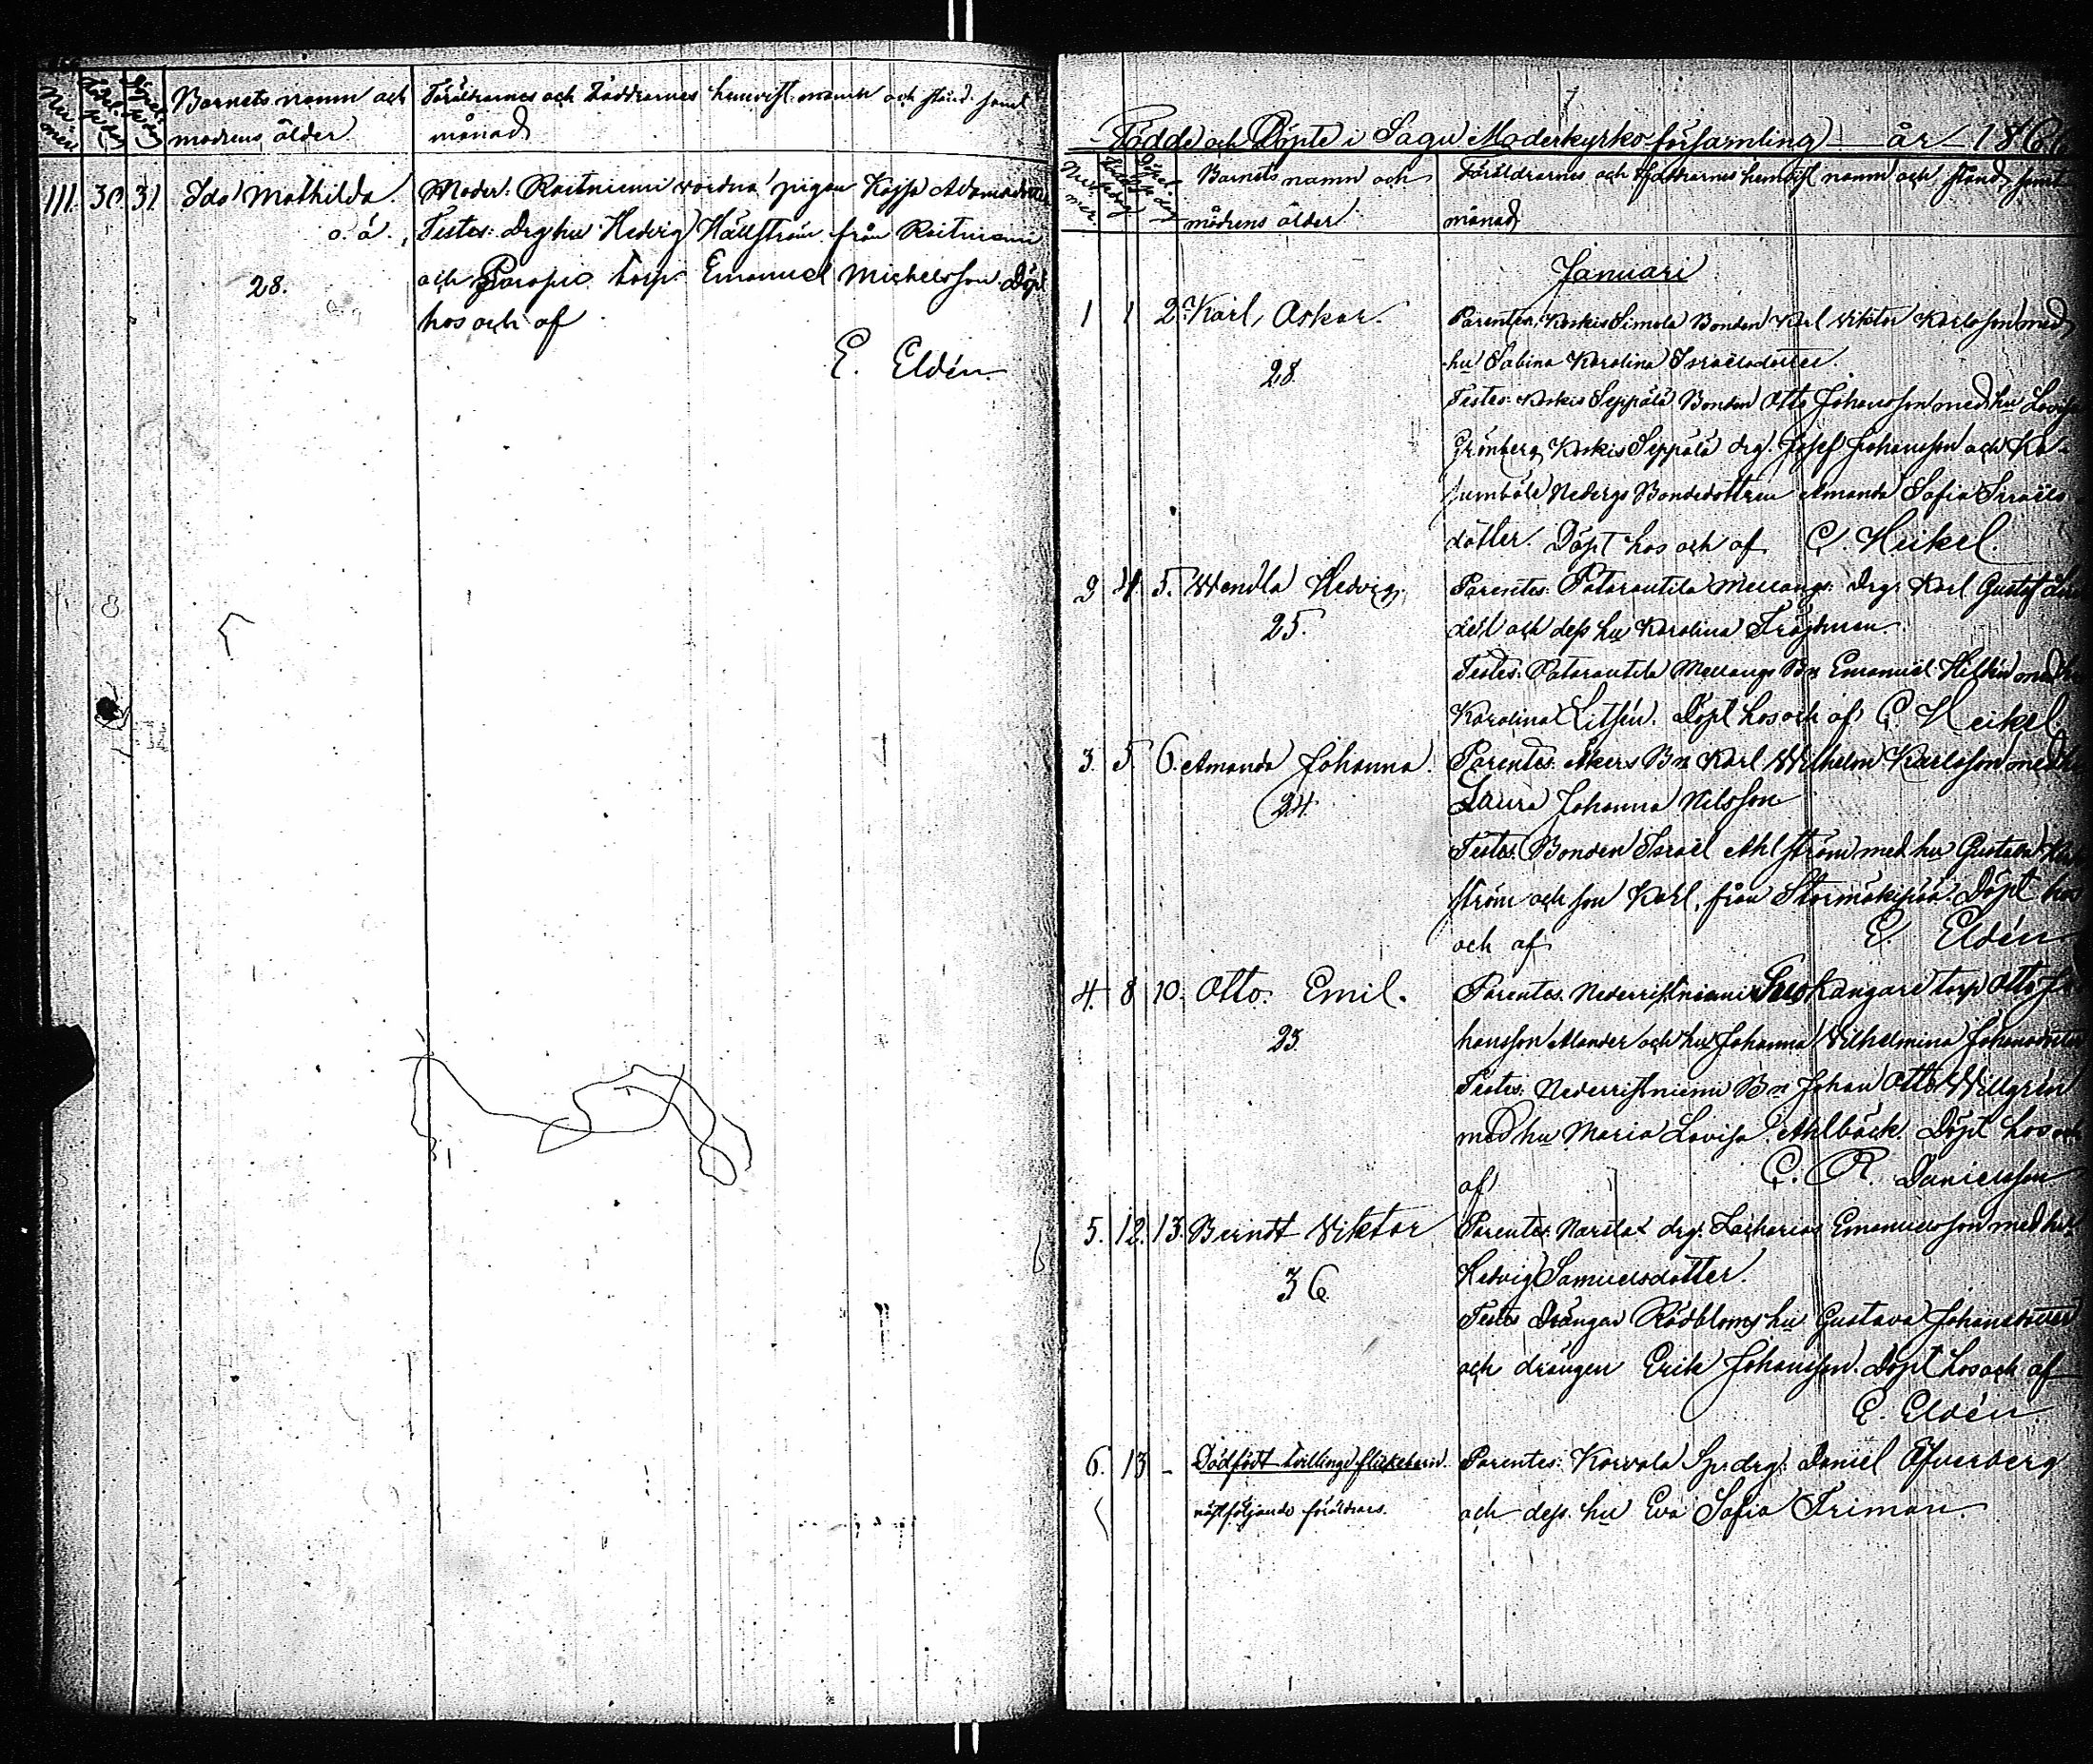 Nummer
Födelse dag
Döpelse dag
Barnets namn och
modrens ålder
Föräldrarnes och Faddrarnes hemvist namn och stånd samt
månad
111. 30. 31. Ida Mathilda.
o. ä.
28.
Moder: Raitniemi vordna pigan Kajsa Adamsdotter
Testes: Drg hu Hedvig Hällström från Raitniemi
och torp. Emanuel Michelsson. Döpt
hos och af
E. Eldén.
Födde och Döpte i Sagu Moderkyrko församling år 186
Nummer
Barnets namn och
modrens ålder
Föräldrarnes och Faddrarnes hemvist namn och stånd samt
månad
Januari
1 1 2. Karl, Oskar.
28.
Parentes: Koskis Simola Bonden Karl Viktor Karlsson med
hu Sabina Karolina Israelsdotter.
Testes: Koskis Seppälä Bonden Otto Johansson med hu Lovisa
Grönberg, Koskis Seppälä drg. Josef Johansson och
Nedergs Bondedottren Amanda Sofia Israels
dotter. Döpt hos och af C. Heikel.
2 4. 5. Wendla Hedvig.
25.
Parentes: Patarautila Mellangs: Drg: Karl Gustaf
dell och dess hu Karolina
Testes: Patarautila Mellangs Bn Emanuel Hellén med hu
Karolina Litsén. Döpt hos och af C. Heikel.
3. 5. 6. Amanda Johanna.
24.
Parentes: Åkers Bn Karl Wilhelm Karlsson med hu
Laura Johanna Nilsson
Testes: Bonden Israel Ahlström med hu Gustava
ström och son Karl, från Döpt hos
och af E. Eldén
4. 8 10. Otto. Emil.
23.
Parentes. Nederristniemi torp Otto Jo
hansson Alander och hu Johanna Vilhelmina Johansdotter
Testes: Nederristniemi Bn Johan Otto Willgrén
med hu Maria Lovisa Ahlbäck. Döpt hos och
af C. R. Danielsson
5. 12. 13. Berndt Viktor
36
Parentes: drg: Zacharias Emanuelsson med hu
Hedvig Samuelsdotter.
Testes Drängen Rödbloms hu Gustava Johansdotter
och drängen Erik Johansson. Döpt hos och af
E. Eldén.
6. 13 – Dödfödt tvillinge flickebarn.
näst följande föräldrars.
Parentes: Korvala Sp: drg: Daniel Öfverberg
och dess hu Eva Sofia Friman.